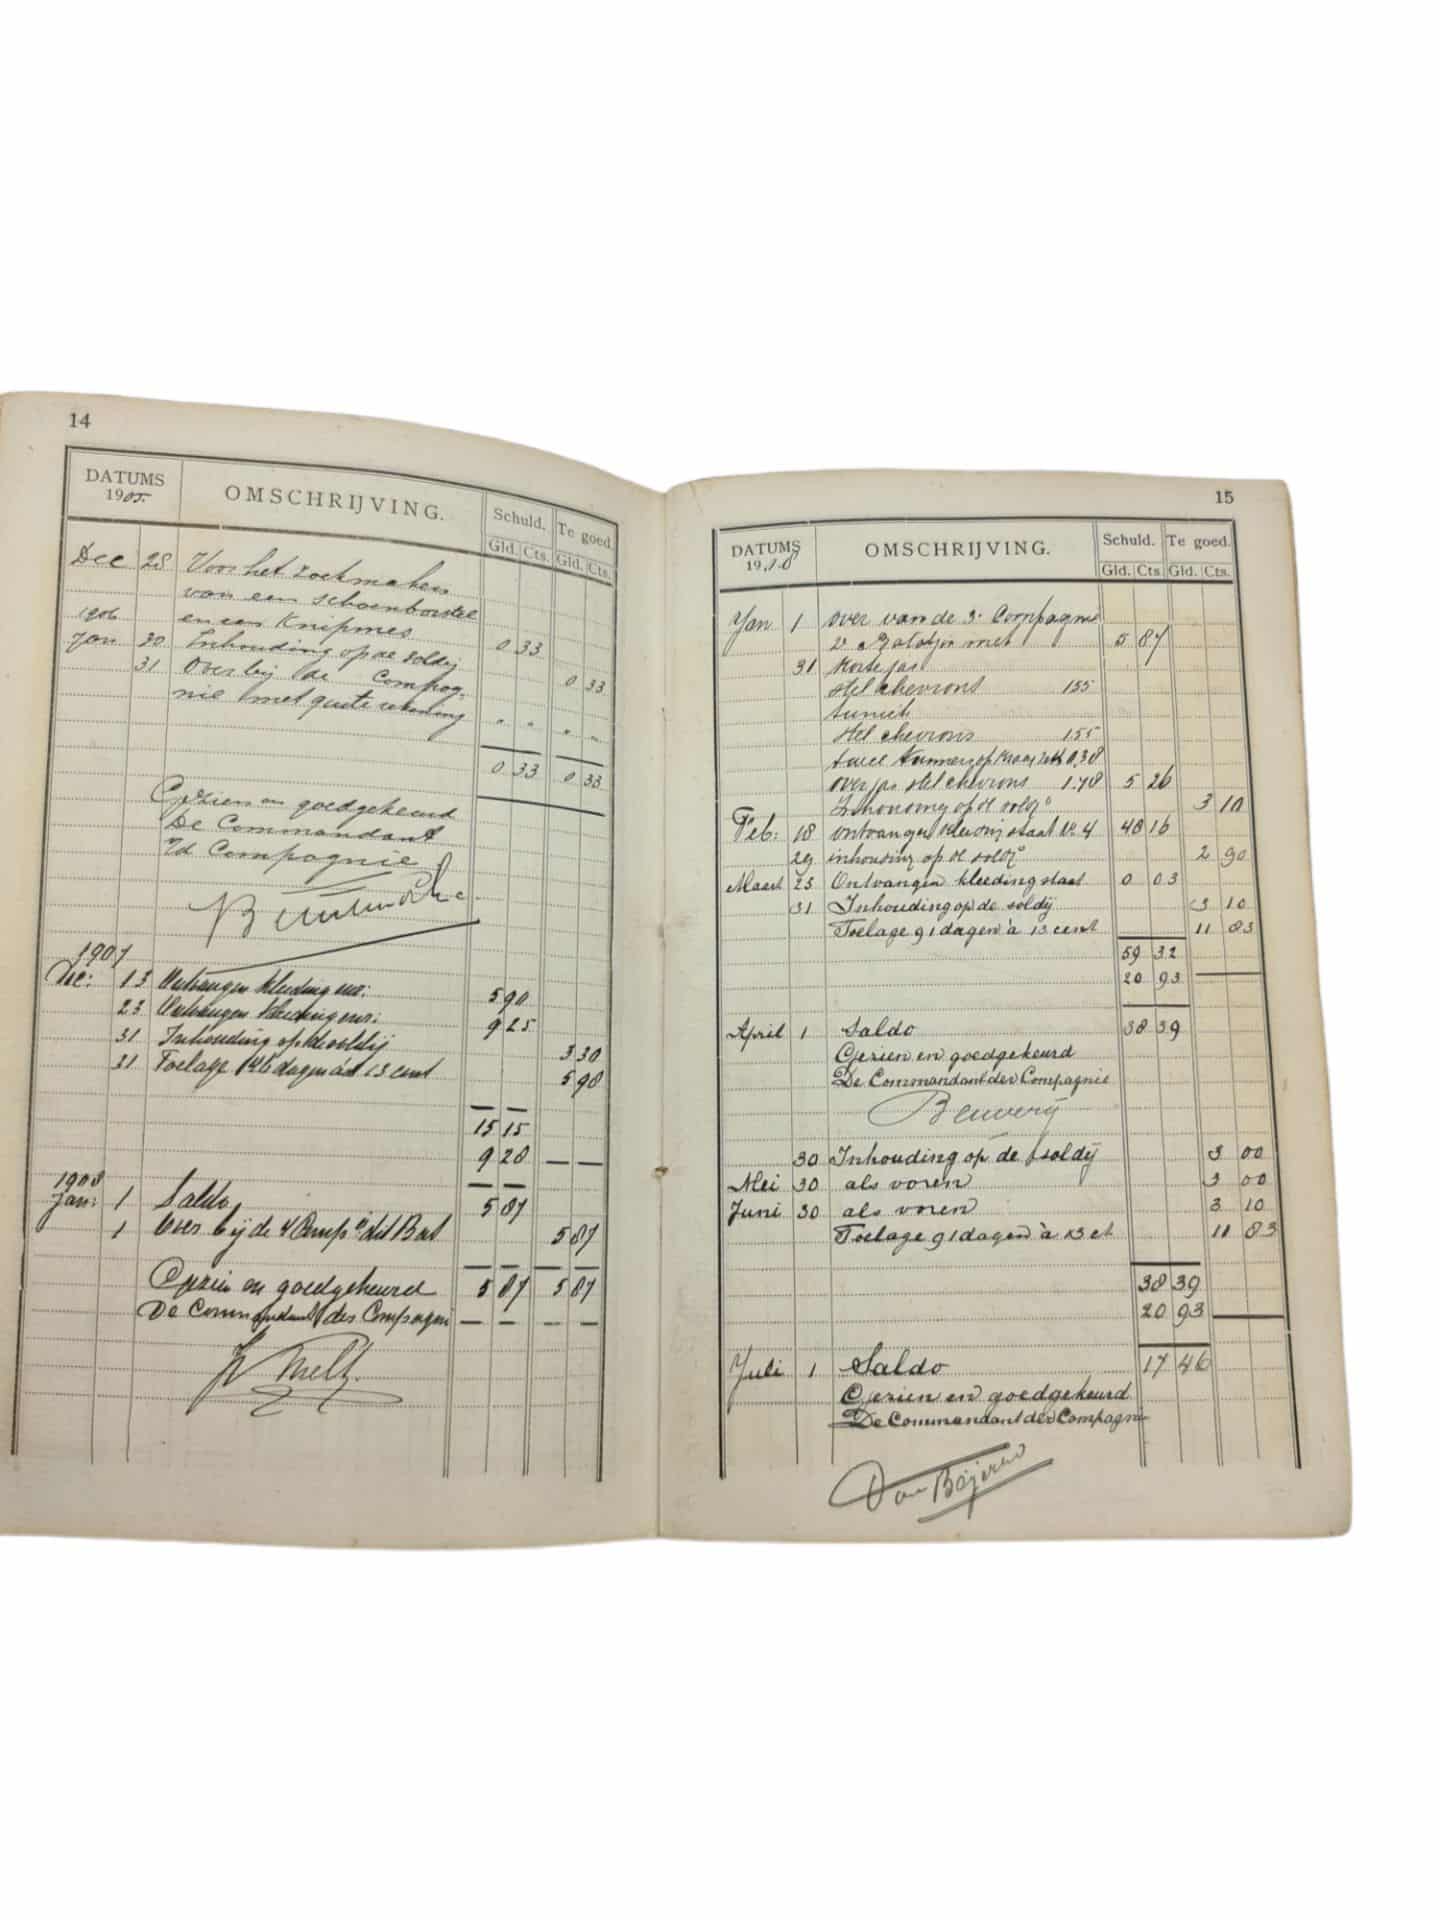 14
DATUMS 1905. OMSCHRIJVING. Schuld. Te goed.
Gld. Cts. Gld. Cts.
Dec 28 Voor het zoekmaken
van een schoenborstel
1906 en een Knipmes 0 33
Jan 30 Inhouding op de soldij 0 33
31 Over bij de Compag-
nie met quite rekening " " " "
0 33 0 33
Gezien en goedgekeurd
De Commandant
Compagnie
1907
Dec: 13 Ontvangen kleeding enz: 5 90
23 Ontvangen kleeding enz: 9 25
31 Inhouding op de soldij 3 30
31 Toelage 46 dagen à 13 cent 5 98
15 15
9 28 — —
1908
Jan: 1 Saldo 5 87
1 Over bij de 4 Comp dit Bat 5 87
Gezien en goedgekeurd 5 87 5 87
De Commandant der Compagnie — — — —
15
DATUMS 1908 OMSCHRIJVING. Schuld. Te goed.
Gld. Cts. Gld. Cts.
Jan 1 over van de 3e Compagnie
2e Bataljon met 5 87
31 Korte jas
stel chevrons 155
tuniek
stel chevrons 155
twee nummers op kraag 0,38
overjas stel chevrons 1.78 5 26
Inhouding op de soldij 3 10
Feb: 18 ontvangen kleeding staat No 4 48 16
29 inhouding op de soldij 2 90
Maart 23 Ontvangen kleeding staat 0 03
31 Inhouding op de soldij 3 10
Toelage 91 dagen à 13 cent 11 83
59 32
20 93
April 1 Saldo 38 39
Gezien en goedgekeurd
De Commandant der Compagnie
30 Inhouding op de soldij 3 00
Mei 30 als voren 3 00
Juni 30 als voren 3 10
Toelage 91 dagen à 13 ct 11 83
38 39
20 93
Juli 1 Saldo 17 46
Gezien en goedgekeurd
De Commandant der Compagnie
Van Beijeren